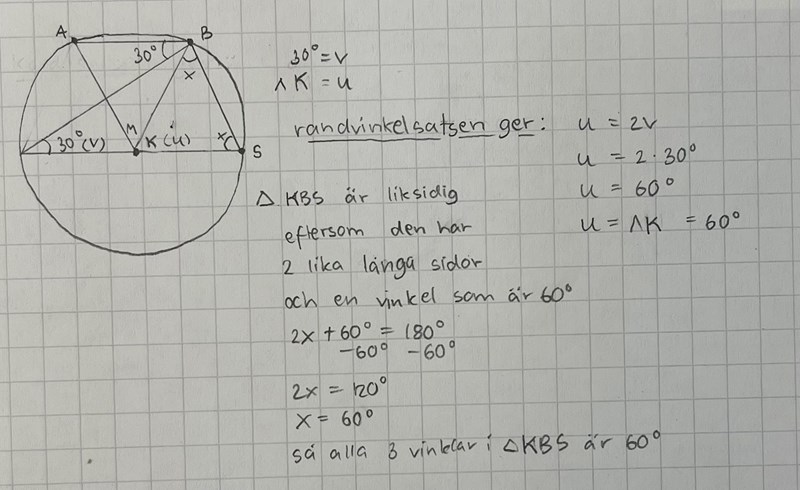 A
B
30°
x
30°(v)
M
K(u)
x
S
30° = v
∧ K = u
randvinkelsatsen ger:
u = 2v
u = 2·30°
u = 60°
u = ∧K = 60°
△ KBS är liksidig
eftersom den har
2 lika långa sidor
och en vinkel som är 60°
2x + 60° = 180°
-60° -60°
2x = 120°
x = 60°
så alla 3 vinklar i △KBS är 60°